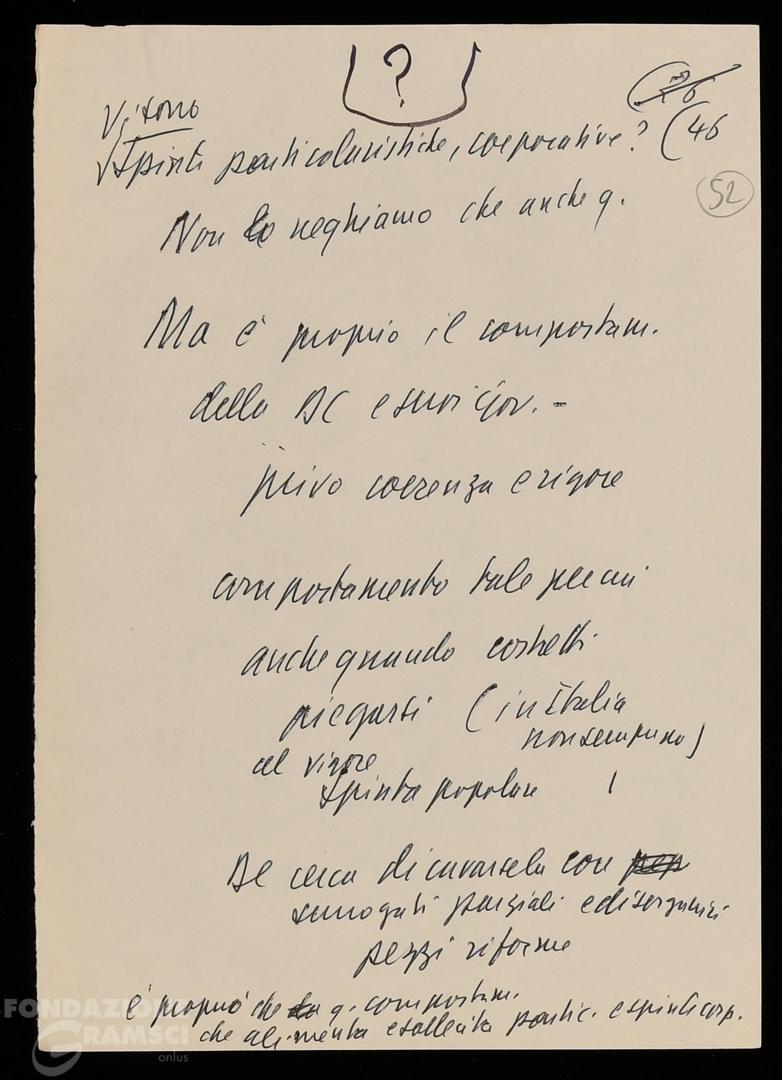 ?
(26
Vi sono
spinte particolaristiche, corporative? (46
52
Non lo neghiamo che anche q.
Ma è proprio il comportam.
della DC e suoi Gov. -
privo coerenza e rigore
comportamento tale per cui
anche quando costretti
piegarsi (in Italia
non sempre no)
al vigore
spinta popolare
DC cerca di cavarsela con
surrogati parziali e disorganici
pezzi riforme
è proprio che q. comportam.
che alimenta e sollecita partic. e spinte corp.
FONDAZIONE
GRAMSCI
onlus